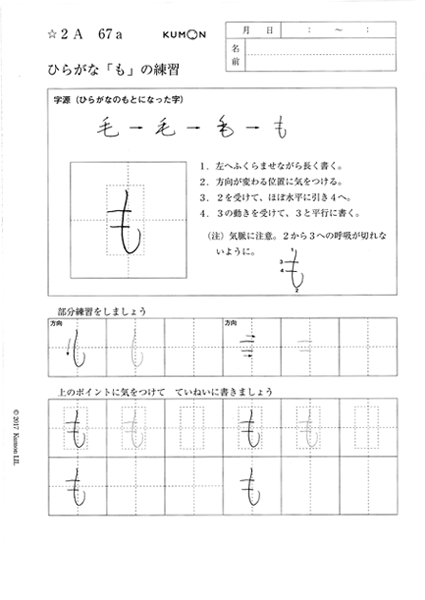 ☆2A 67a
KUMON
月 日 : ～ :
名前
ひらがな「も」の練習
字源（ひらがなのもとになった字）
毛→毛→も→も
も
1．左へふくらませながら長く書く。
2．方向が変わる位置に気をつける。
3．2を受けて、ほぼ水平に引き4へ。
4．3の動きを受けて、3と平行に書く。
（注）気脈に注意。2から3への呼吸が切れな
いように。
1
3
4
も
2
部分練習をしましょう
方向 方向
上のポイントに気をつけて ていねいに書きましょう
も も も も
も も
© 2017 Kumon LIL